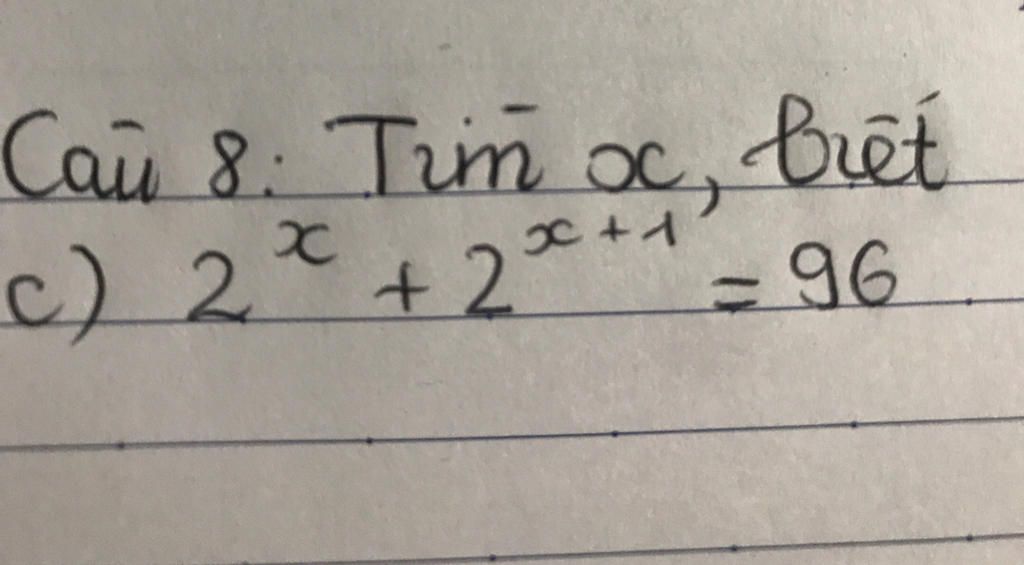 Câu 8: Tìm x, biết
c) 2^x + 2^{x+1} = 96